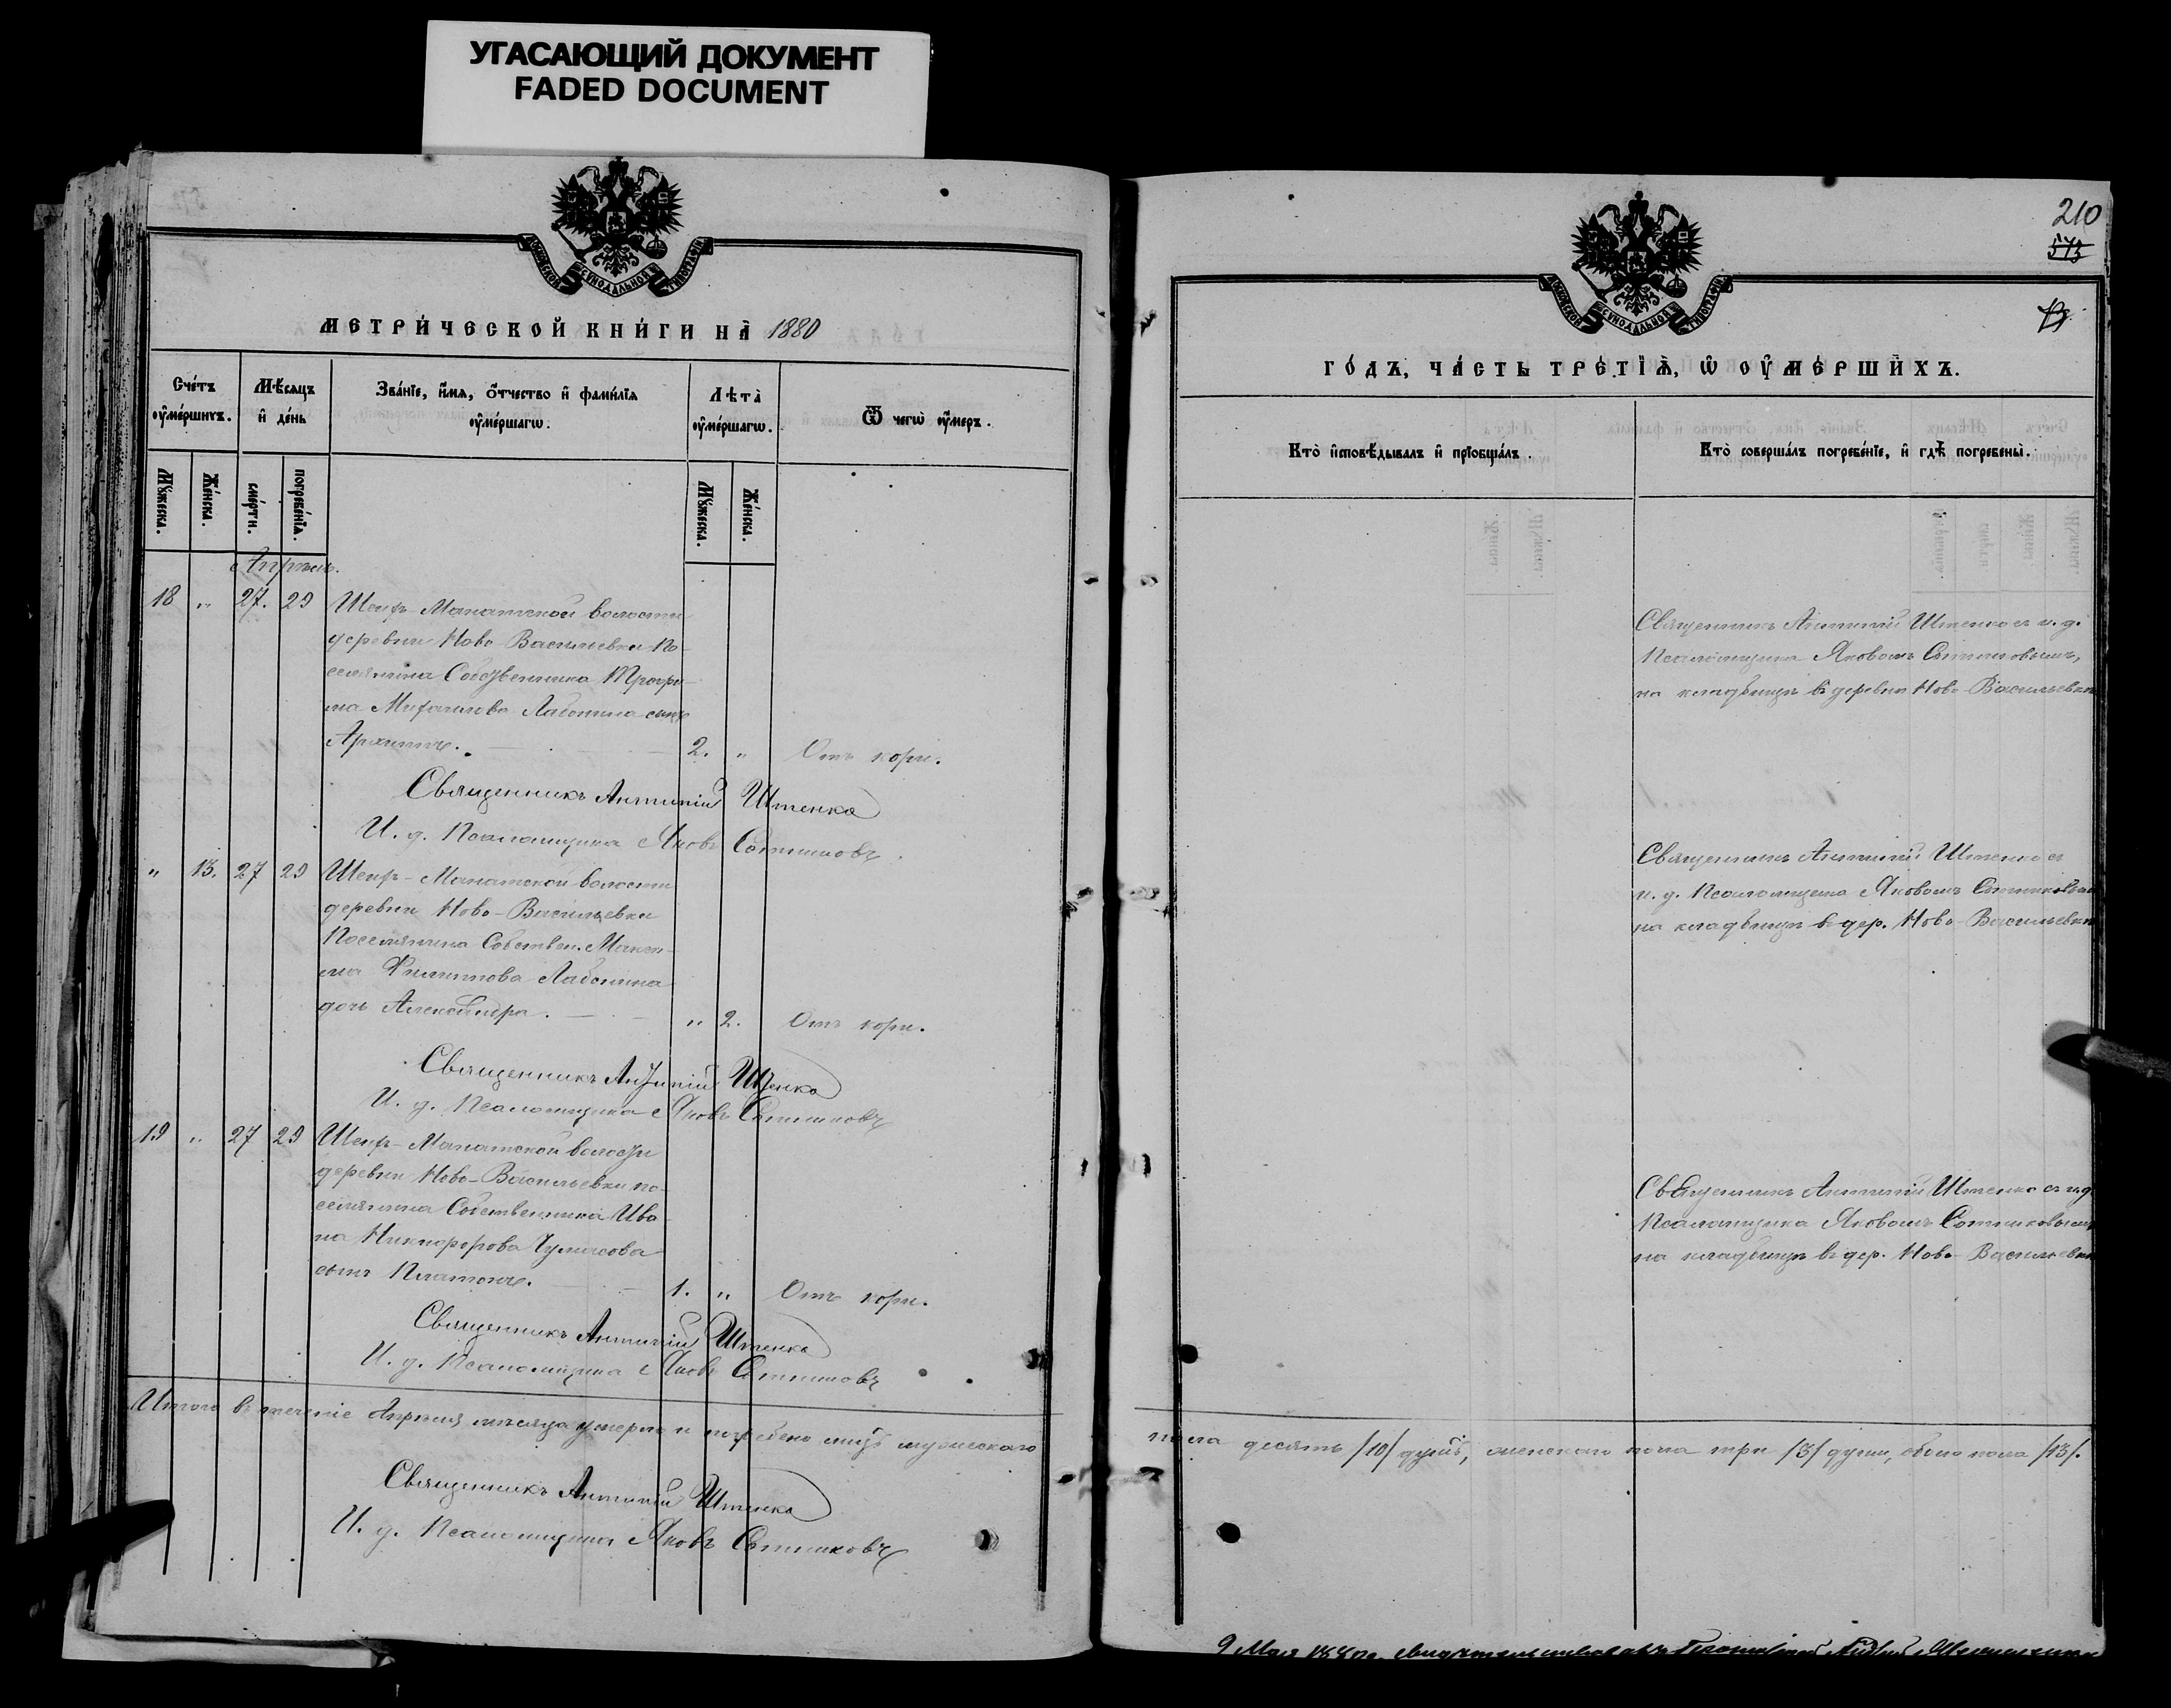 УГАСАЮЩИЙ ДОКУМЕНТ
FADED DOCUMENT
МЕТРИ́ЧЕСКОЙ КНИ́ГИ НА̀ 1880
Сче́тъ ᲂу҆ме́ршихъ.
Мѣ́сѧцъ и҆ де́нь
Зва́нїе, и҆́мѧ, ѻ҆́тчество и҆ фами́лїѧ ᲂу҆ме́ршагѡ.
Лѣта̀ ᲂу҆ме́ршагѡ.
Ѿ чегѡ̀ ᲂу҆́меръ.
Мꙋ́жеска.
Же́нска.
сме́рти.
погребе́нїѧ.
Мꙋ́жеска.
Же́нска.
Апрель.
18 „ 27. 29 Шеиръ-Манатской волости
деревни Ново Васильевки По-
селянина Собственника Трофи-
ма Михаилова Лаботина сынъ
Архиппъ. 2. „ Отъ кори.
Священникъ Антипій Штенко
И. д. Псаломщика Яковъ Сотниковъ
„ 13. 27 29 Шеиръ-Манатской волости
деревни Ново-Васильевки
Поселянина Собствен. Макси-
ма Филиппова Лаботина
дочь Александра. „ 2. Отъ кори.
Священникъ Антипій Штенко
И. д. Псаломщика Яковъ Сотниковъ
19 „ 27 29 Шеиръ-Манатской волости
деревни Ново-Васильевки по-
селянина Собственника Ива-
на Никифорова Чумасова
сынъ Платонъ. 1. „ Отъ кори.
Священникъ Антипій Штенко
И. д. Псаломщика Яковъ Сотниковъ
Итого въ теченіе Апрѣля мѣсяца умерло и погребено лицъ мужескаго
Священникъ Антипій Штенко
И. д. Псаломщика Яковъ Сотниковъ
210
573
ГО́ДЪ, ЧА́СТЬ ТРЕ́ТЇѦ, Ѡ҆ ОУ҆МЕ́РШИХЪ.
Кто̀ и҆сповѣ́дывалъ и҆ прїобща́лъ.
Кто̀ соверша́лъ погребе́нїе, и҆ гдѣ̀ погребены̀.
Священникъ Антипій Штенко съ и. д.
Псаломщика Яковомъ Сотниковымъ,
на кладбищѣ въ деревни Ново-Васильевки
Священникъ Антипій Штенко съ
и. д. Псаломщика Яковомъ Сотниковымъ
на кладбищѣ въ дер. Ново-Васильевки
Священникъ Антипій Штенко съ и. д.
Псаломщика Яковомъ Сотниковымъ
на кладбищѣ въ дер. Ново-Васильевки
пола десять /10/ душъ, женскаго пола три /3/ души, обоего пола /13/.
9 Мая 1880 г.